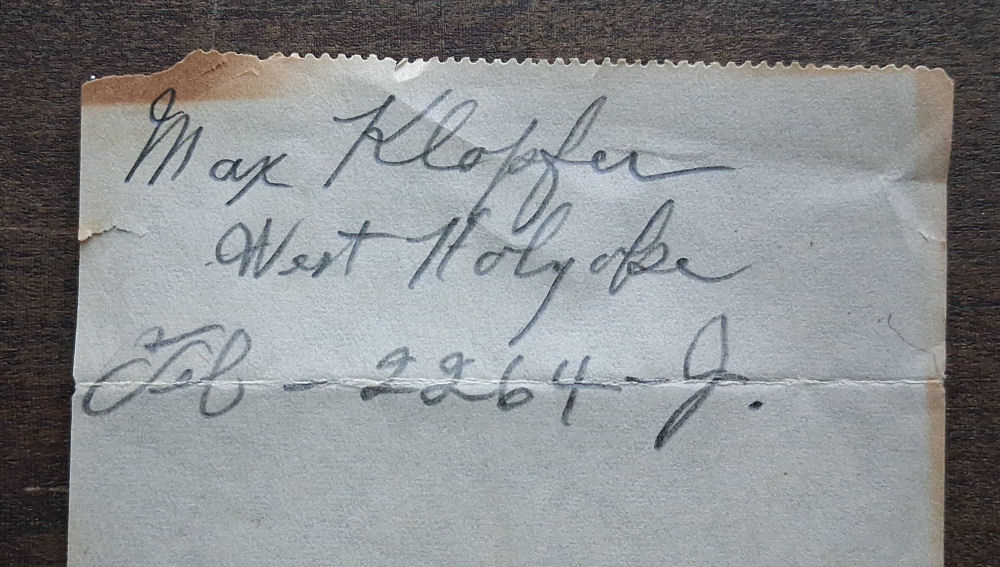 Max Klopfer
West Holyoke
Tel - 2264 - J.